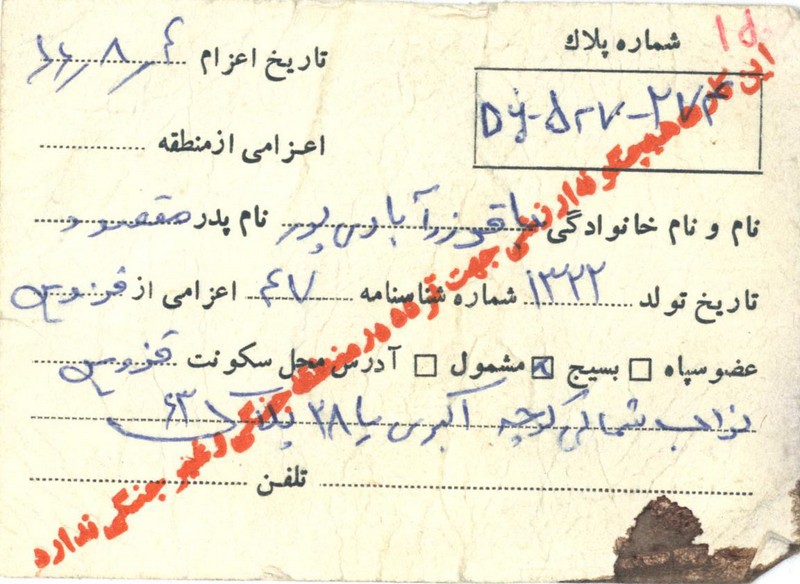 شماره پلاک
۱۵
تاریخ اعزام ۶۶٫۸٫۴
DY-۵۲۷-۲۷۴
اعزامی از منطقه
نام و نام خانوادگی باقرزرآبادی پور نام پدر مقصود
تاریخ تولد ۱۳۲۲ شماره شناسنامه ۴۷ اعزامی از قزوین
عضو سپاه بسیج مشمول آدرس محل سکونت قزوین
نواب شمالی کوچه اکبری پلاک ۶۳
تلفن
این کارت هیچگونه ارزشی جهت تردد در منطقه جنگی و غیر جنگی ندارد